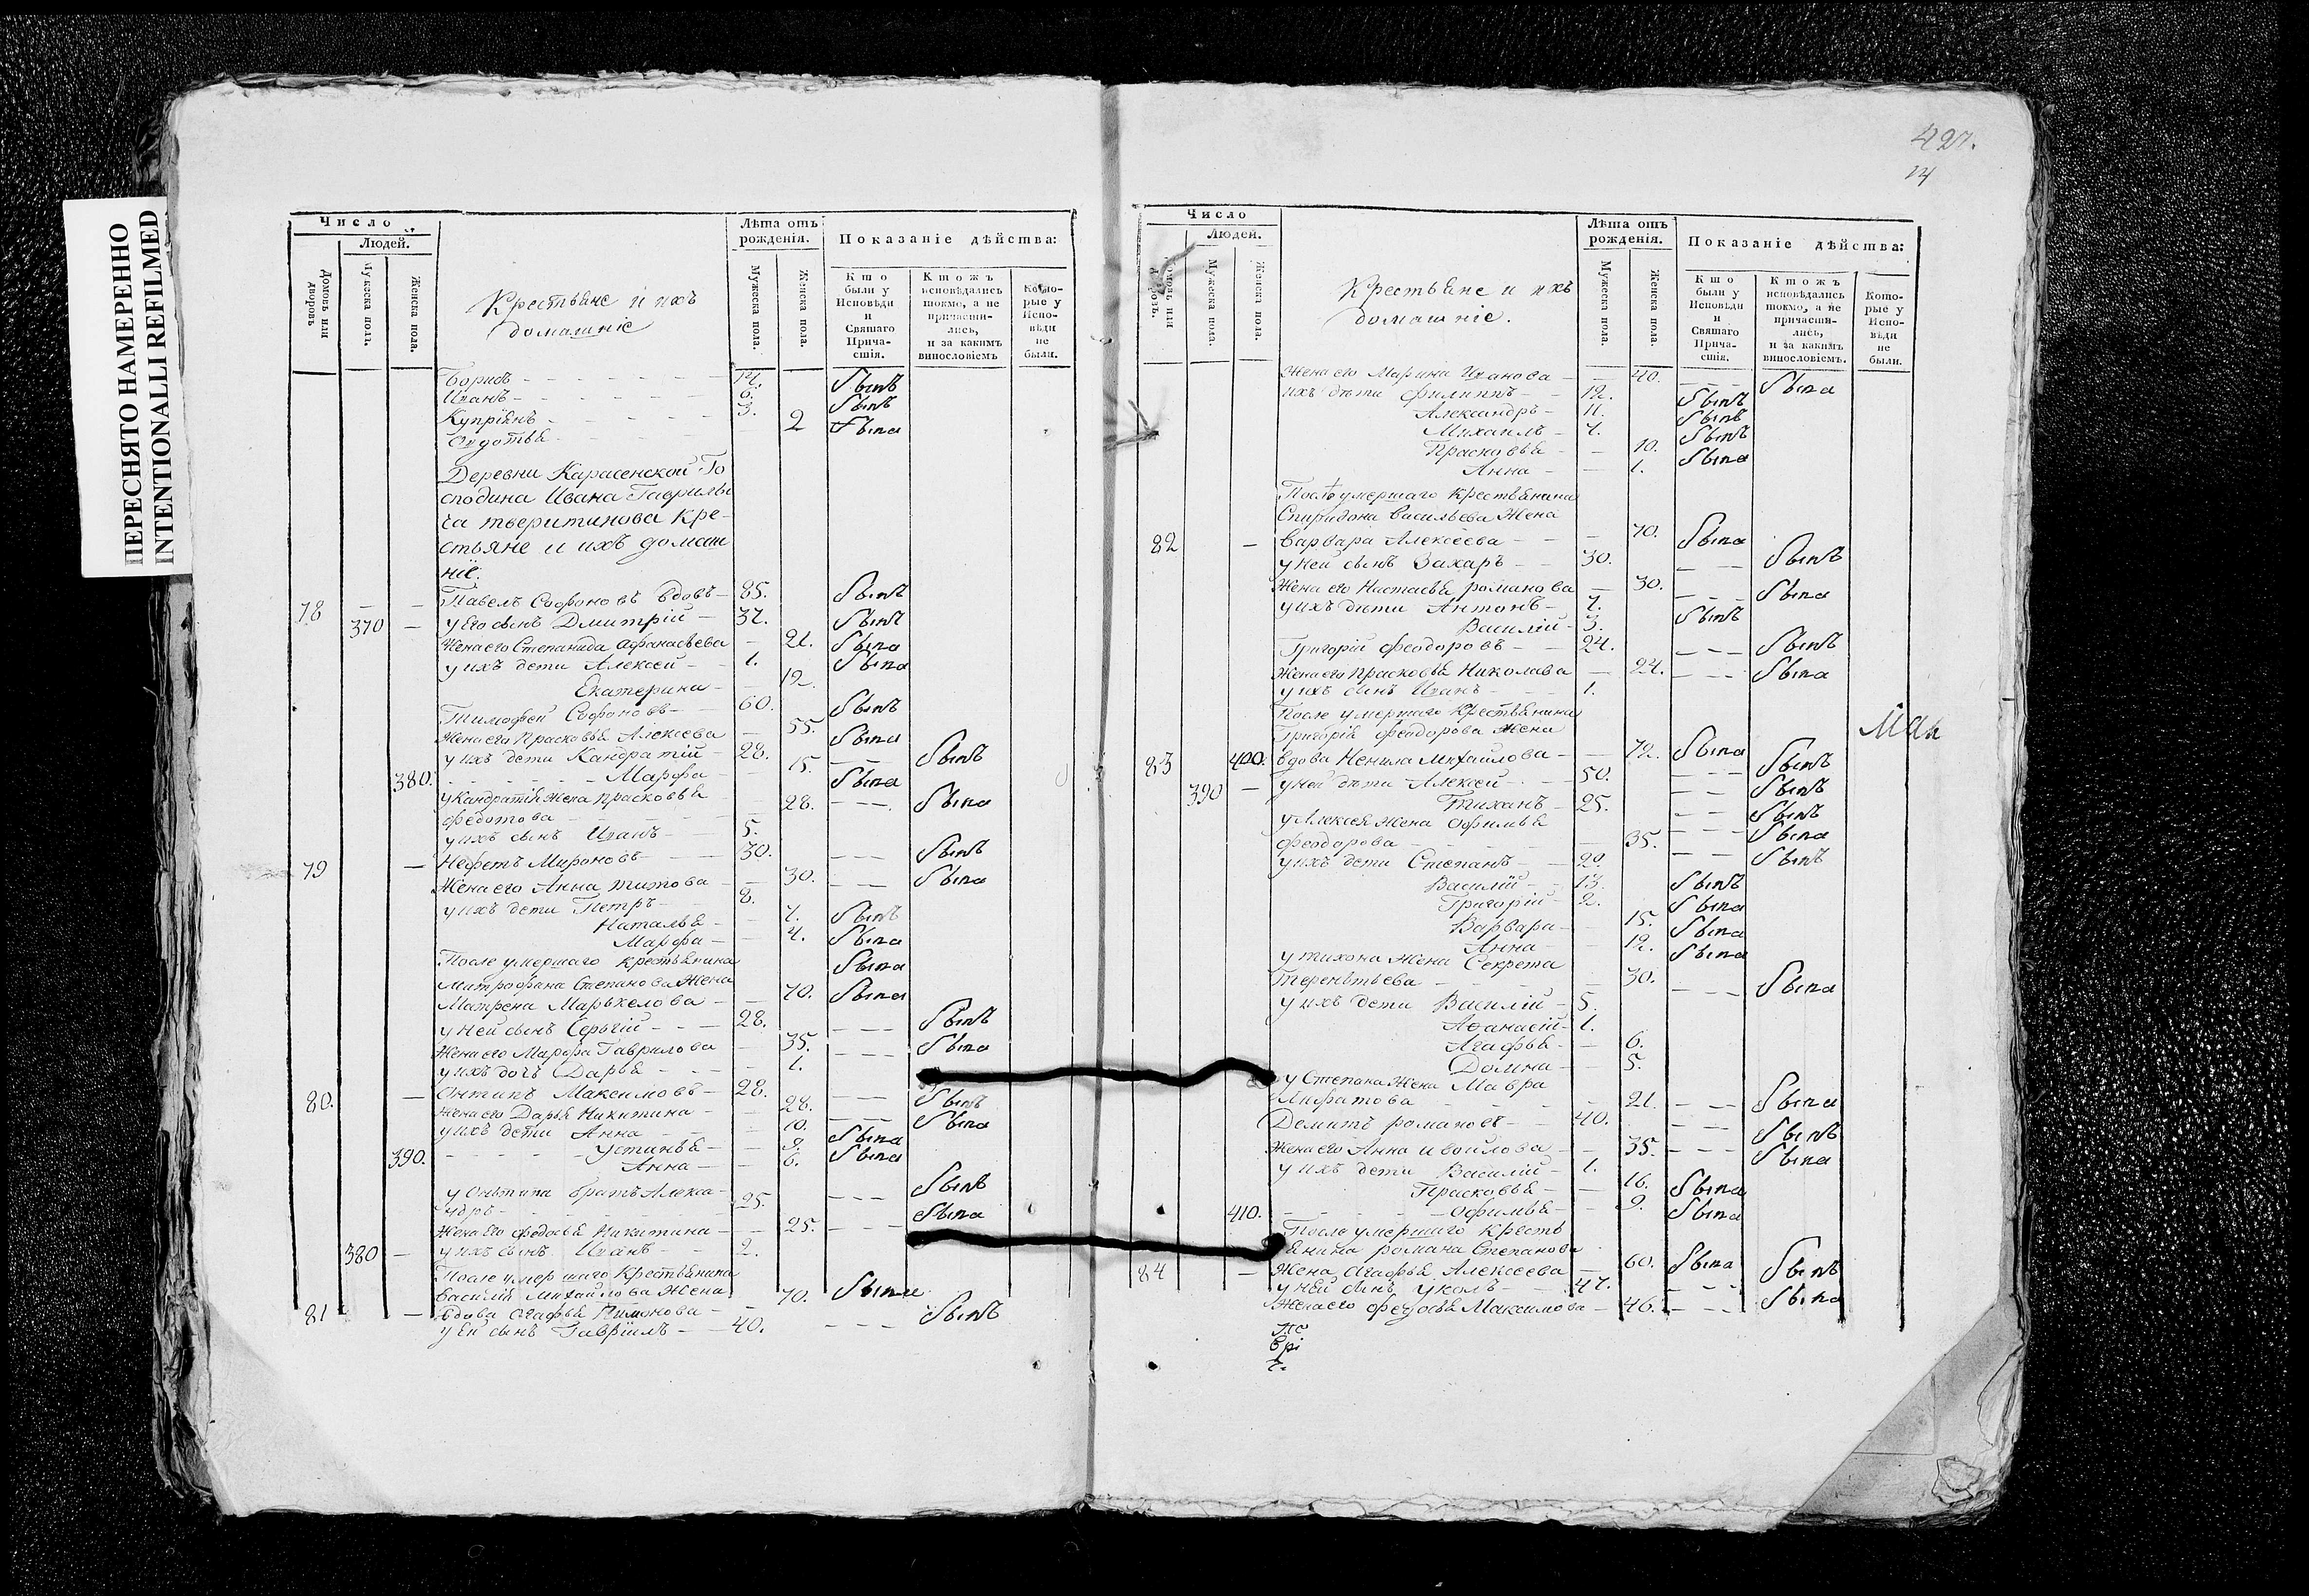 ПЕРЕСНЯТО НАМЕРЕННО
INTENTIONALLI REFILMED
Число
Людей.
Домовъ или дворовъ
Мужеска пола.
Женска пола.
Крестьяне и ихъ
домашніе
Лѣта отъ
рожденія.
Мужеска пола.
Женска пола.
Показаніе дѣйства:
Кто были у Исповѣди и Святаго Причастія.
Ктожъ исповѣдались токмо, а не причастились, и за какимъ винословіемъ
Которые у Исповѣди не были.
Борисъ - 14. былъ
Иванъ - 6. былъ
Купріянъ - 3.
Овдотья 2 была
Деревни Карасенской Го
сподина Ивана Гаврилы
ча тверитинова Кре-
стьяне и ихъ домаш
ніе.
78 Павелъ Софоновъ вдовъ - 85. былъ
370 у Его сынъ Дмитрій - 37. былъ
Жена его Степанида Афанасьева - 21. была
у ихъ дети Алексей - 1.
Екатерина - 12. была
Тимофей Софоновъ - 60. былъ
Жена его Прасковья Алексеева - 55. была
у ихъ дети Кандратій - 28. былъ
380. Марфа - 15. была
у Кандратія Жена прасковья
федотова - 28. была
у ихъ сынъ Иванъ - 5.
79 Нефетъ Мироновъ - 30. былъ
Жена его Анна титова - 30. была
у ихъ дети Петръ - 8. былъ
Наталья - 7. была
Марфа - 4. была
После умершаго крестьянина
Митрофана Степанова Жена
Матрена Маркелова - 70. была
у ней сынъ Сергій - 28. былъ
Жена его Марфа Гаврилова - 35. была
у ихъ дочь Дарья - 1.
80. Онтипъ Максимовъ - 28. былъ
Жена его Дарья Никитина - 28. была
у ихъ дети Анна - 10. была
390. Устинья - 9. была
Анна - 6.
у Онтипа братъ Алекса-
ндръ - 25. былъ
Жена его федосья Никитина - 25. была
380 у ихъ сынъ Иванъ - 2.
После умершаго Крестьянина
Василія Михайлова Жена
81 вдова Агафья Пимонова - 70. была
у Ей сынъ Гавріилъ - 40. былъ
427.
14
Число
Людей.
Мужеска пола.
Женска пола.
Крестьяне и ихъ
домашніе.
Лѣта отъ
рожденія.
Мужеска пола.
Женска пола.
Показаніе дѣйства:
Кто были у Исповѣди и Святаго Причастія.
Ктожъ исповѣдались токмо, а не причастились, и за какимъ винословіемъ.
Которые у Исповѣди не были.
Жена его Марина Иванова - 40. была
ихъ дѣти Филиппъ - 12. былъ
Александръ - 11. былъ
Михаилъ - 7. былъ
Прасковья - 10. была
Анна - 1.
Послѣ умершаго Крестьянина
Спиридона Васильева Жена
82 Варвара Алексеева - 70. была
у ней сынъ Захаръ - 30. былъ
Жена его Настасья романова - 30. была
у ихъ дети Антонъ - 7. былъ
Василій - 3.
Григорій Феодоровъ - 24. былъ
Жена его Прасковья Николава - 24. была
у ихъ сынъ Иванъ - 1.
После умершаго Крестьянина
Григорія Феодорова Жена
83 400. вдова Ненила Михайлова - 72. была
390 у ней дѣти Алексей - 50. былъ
Тиханъ - 25. былъ
у Алексея Жена Офимья
Феодорова - 35. была
у ихъ дети Степанъ - 20. былъ
Василій - 13. былъ
Григорій - 2.
Варвара - 15. была
Анна - 12. была
у тихона Жена Секрета
Терентьева - 30. была
у ихъ дети Василій - 5.
Афанасій - 1.
Агафья - 6.
Домна - 5.
у Степана Жена Мавра
Лифатова - 21. была
Демитъ романовъ - 40. былъ
Жена его Анна ивойлова - 35. была
у ихъ дети Василій - 1.
Прасковья - 16. была
410. Офимья - 9. была
После умершаго Кресть
янина романа Степанова
84 Жена Агафья Алексеева - 60. была
у ней сынъ Уколъ - 47. былъ
Жена его федосья Максимова - 46. была